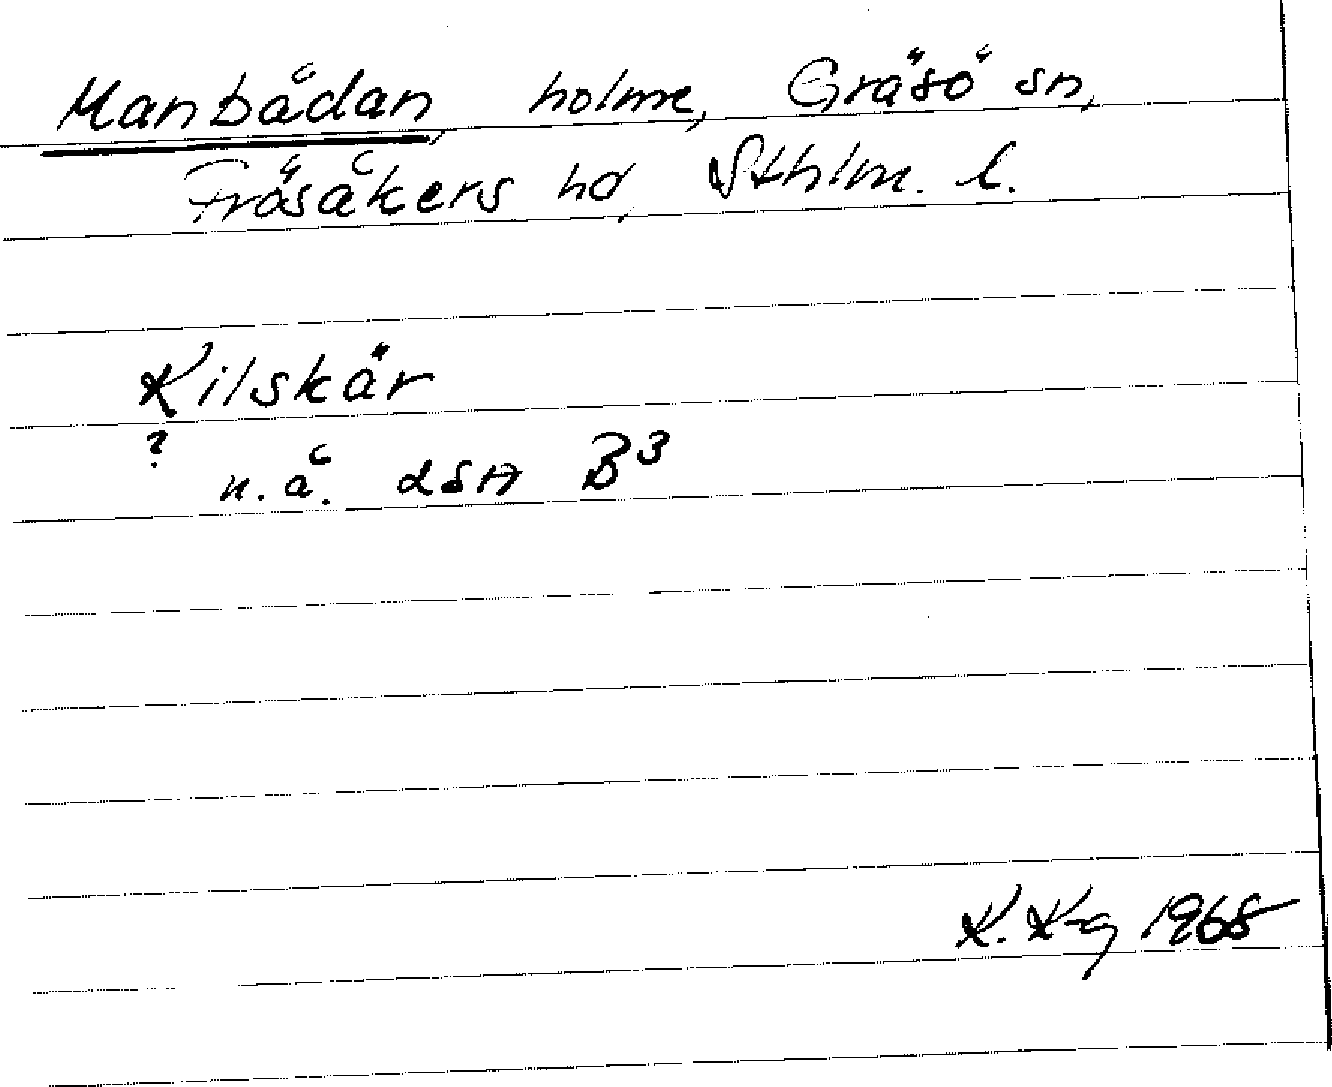 Manbådan, holme, Gräsö sn,
Frösåkers hd, Sthlm. l.
Kilskär
?
n.å. LSA B3
K. K-g 1968